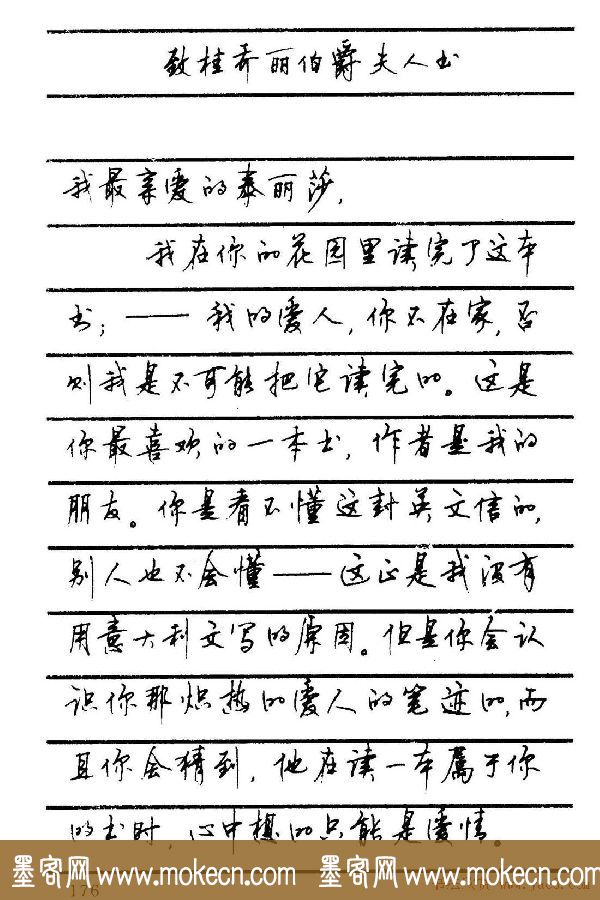 致桂乔丽伯爵夫人书
我最亲爱的泰丽莎,
我在你的花园里读完了这本
书;——我的爱人,你不在家,否
则我是不可能把它读完的。这是
你最喜欢的一本书,作者是我的
朋友。你是看不懂这封英文信的,
别人也不会懂——这正是我没有
用意大利文写的原因。但是你会认
识你那炽热的爱人的笔迹的,而
且你会猜到,他在读一本属于你
的书时,心中想的只能是爱情。
墨客网 www.mokecn.com 墨客网 www.mokecn.com
176